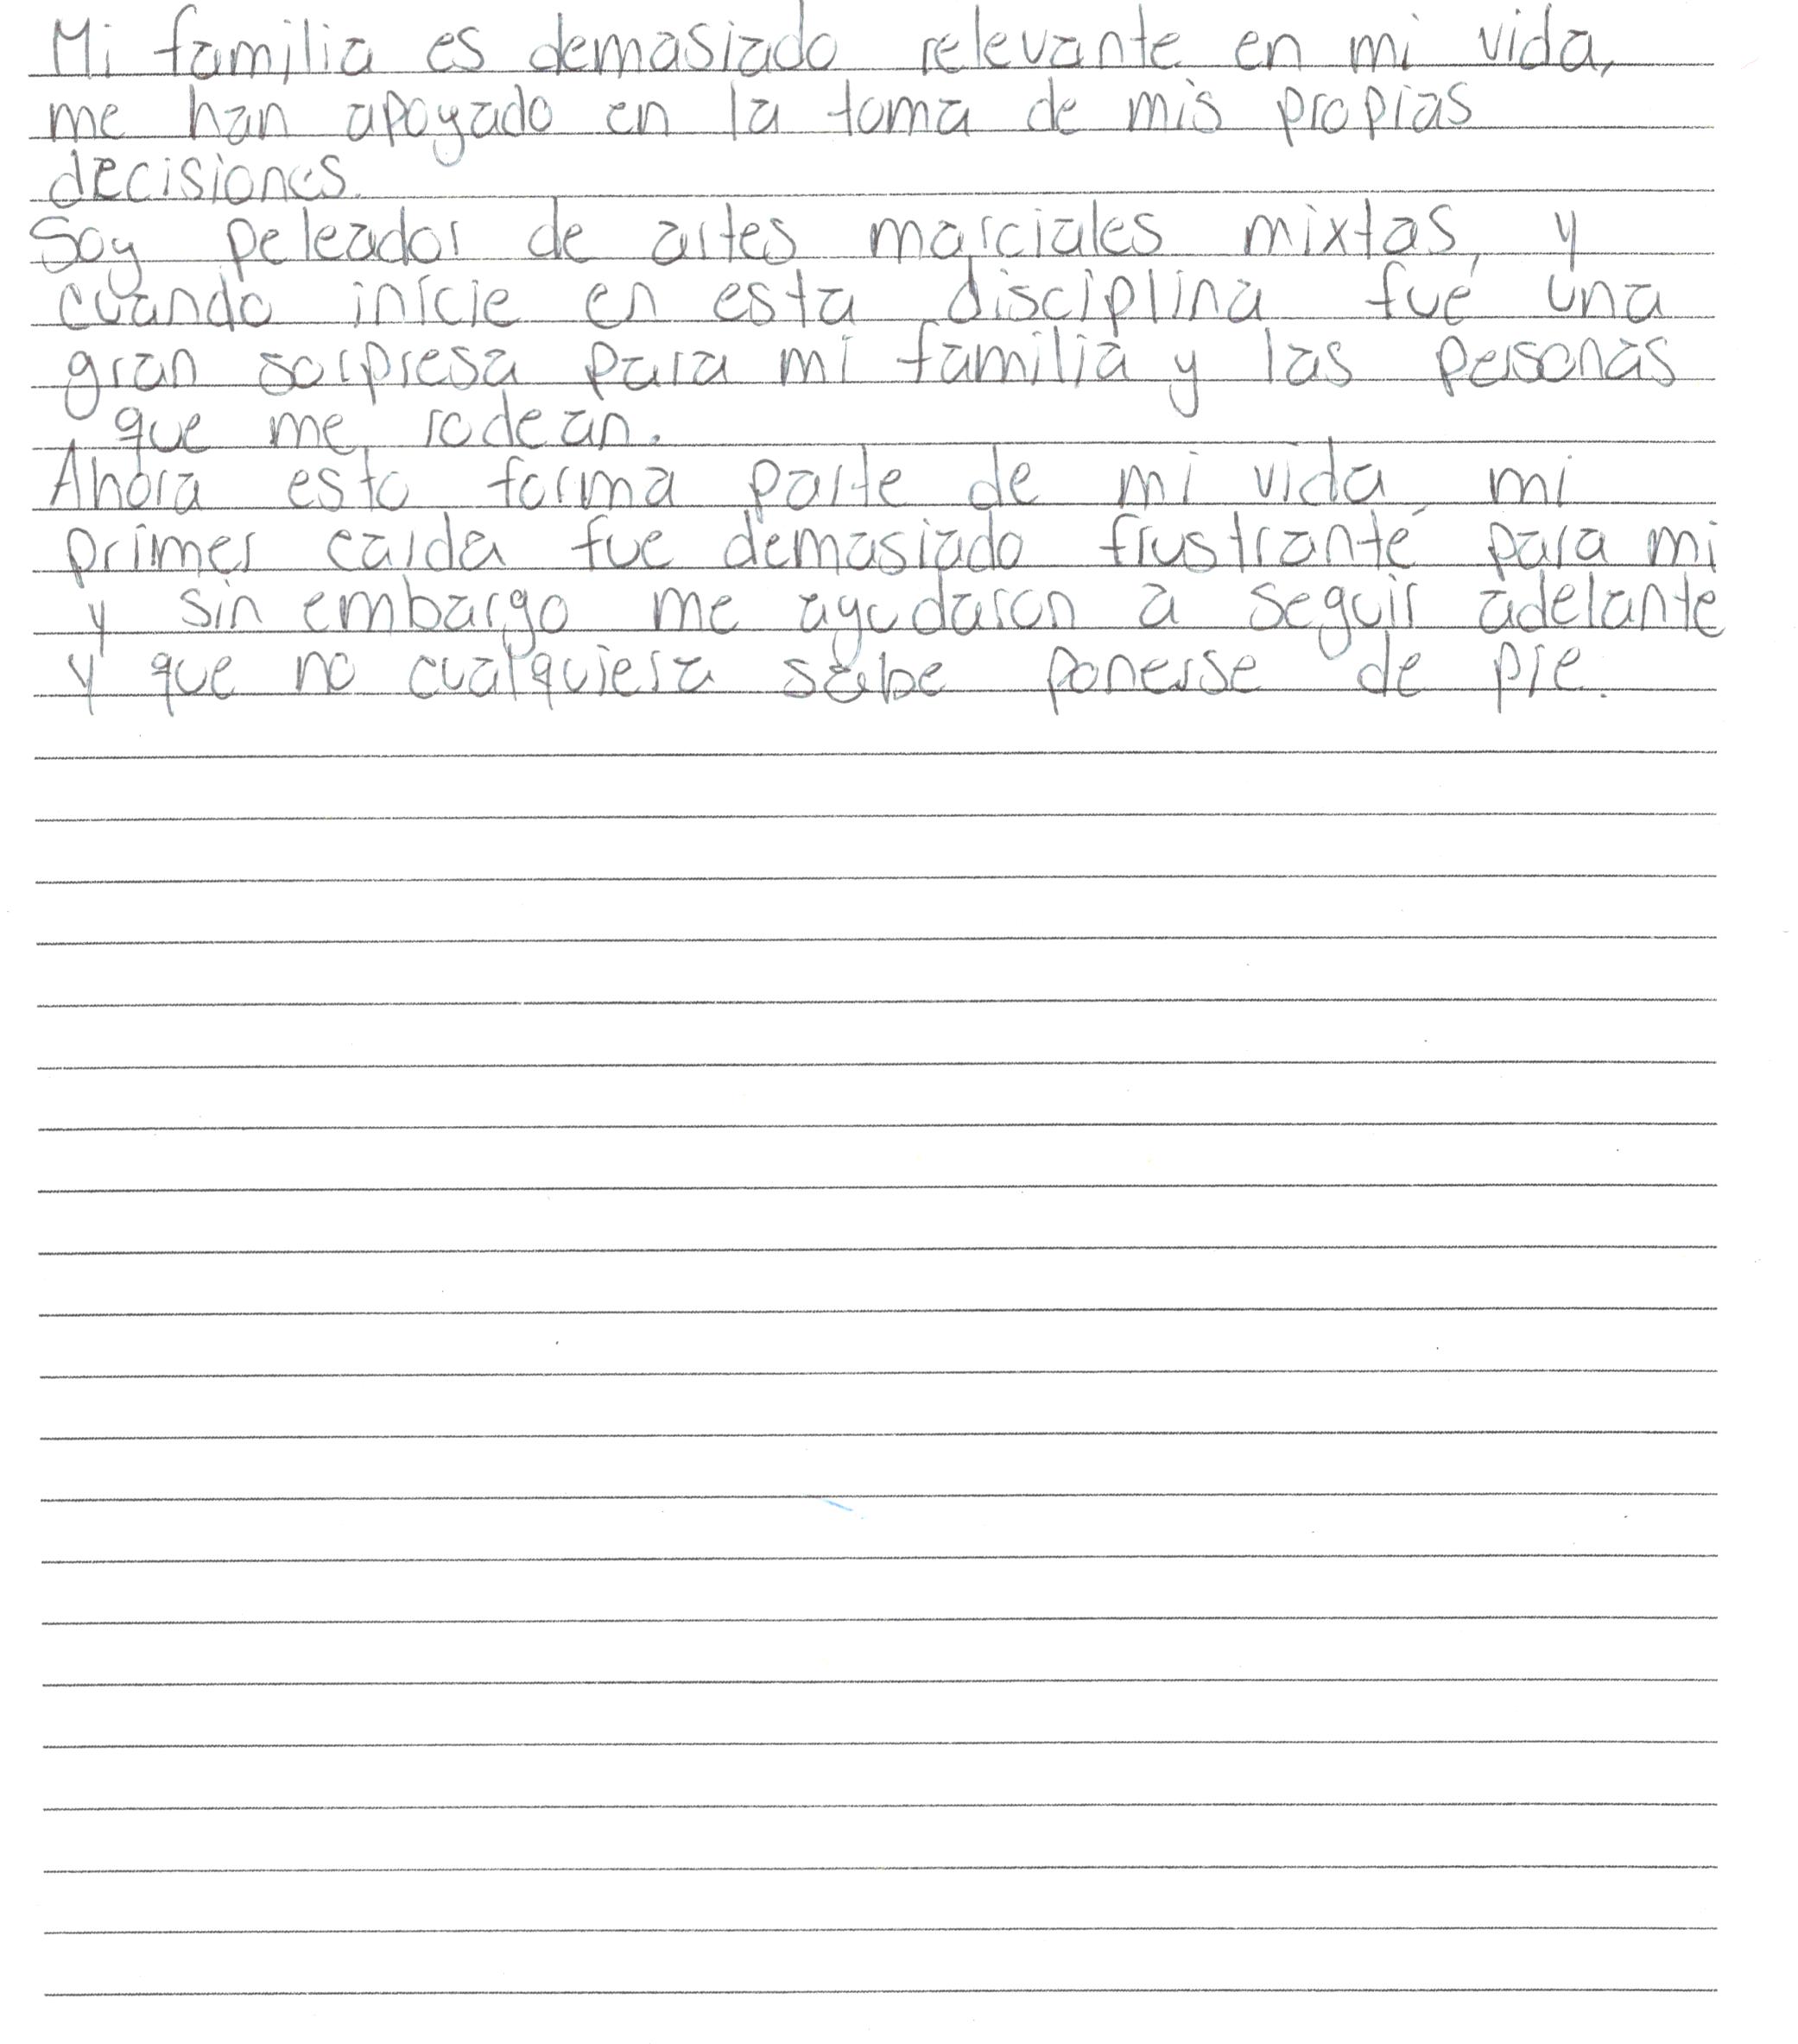 Mi familia es demasiado relevante en mi vida,
me han apoyado en la toma de mis propias
decisiones.
Soy peleador de artes marciales mixtas, y
cuando inicie en esta disciplina fué una
gran sorpresa para mi familia y las personas
que me rodean.
Ahora esto forma parte de mi vida, mi
primer caida fue demasiado frustrante para mi
y sin embargo me ayudaron a seguir adelante
y que no cualquiera sabe ponerse de pie.